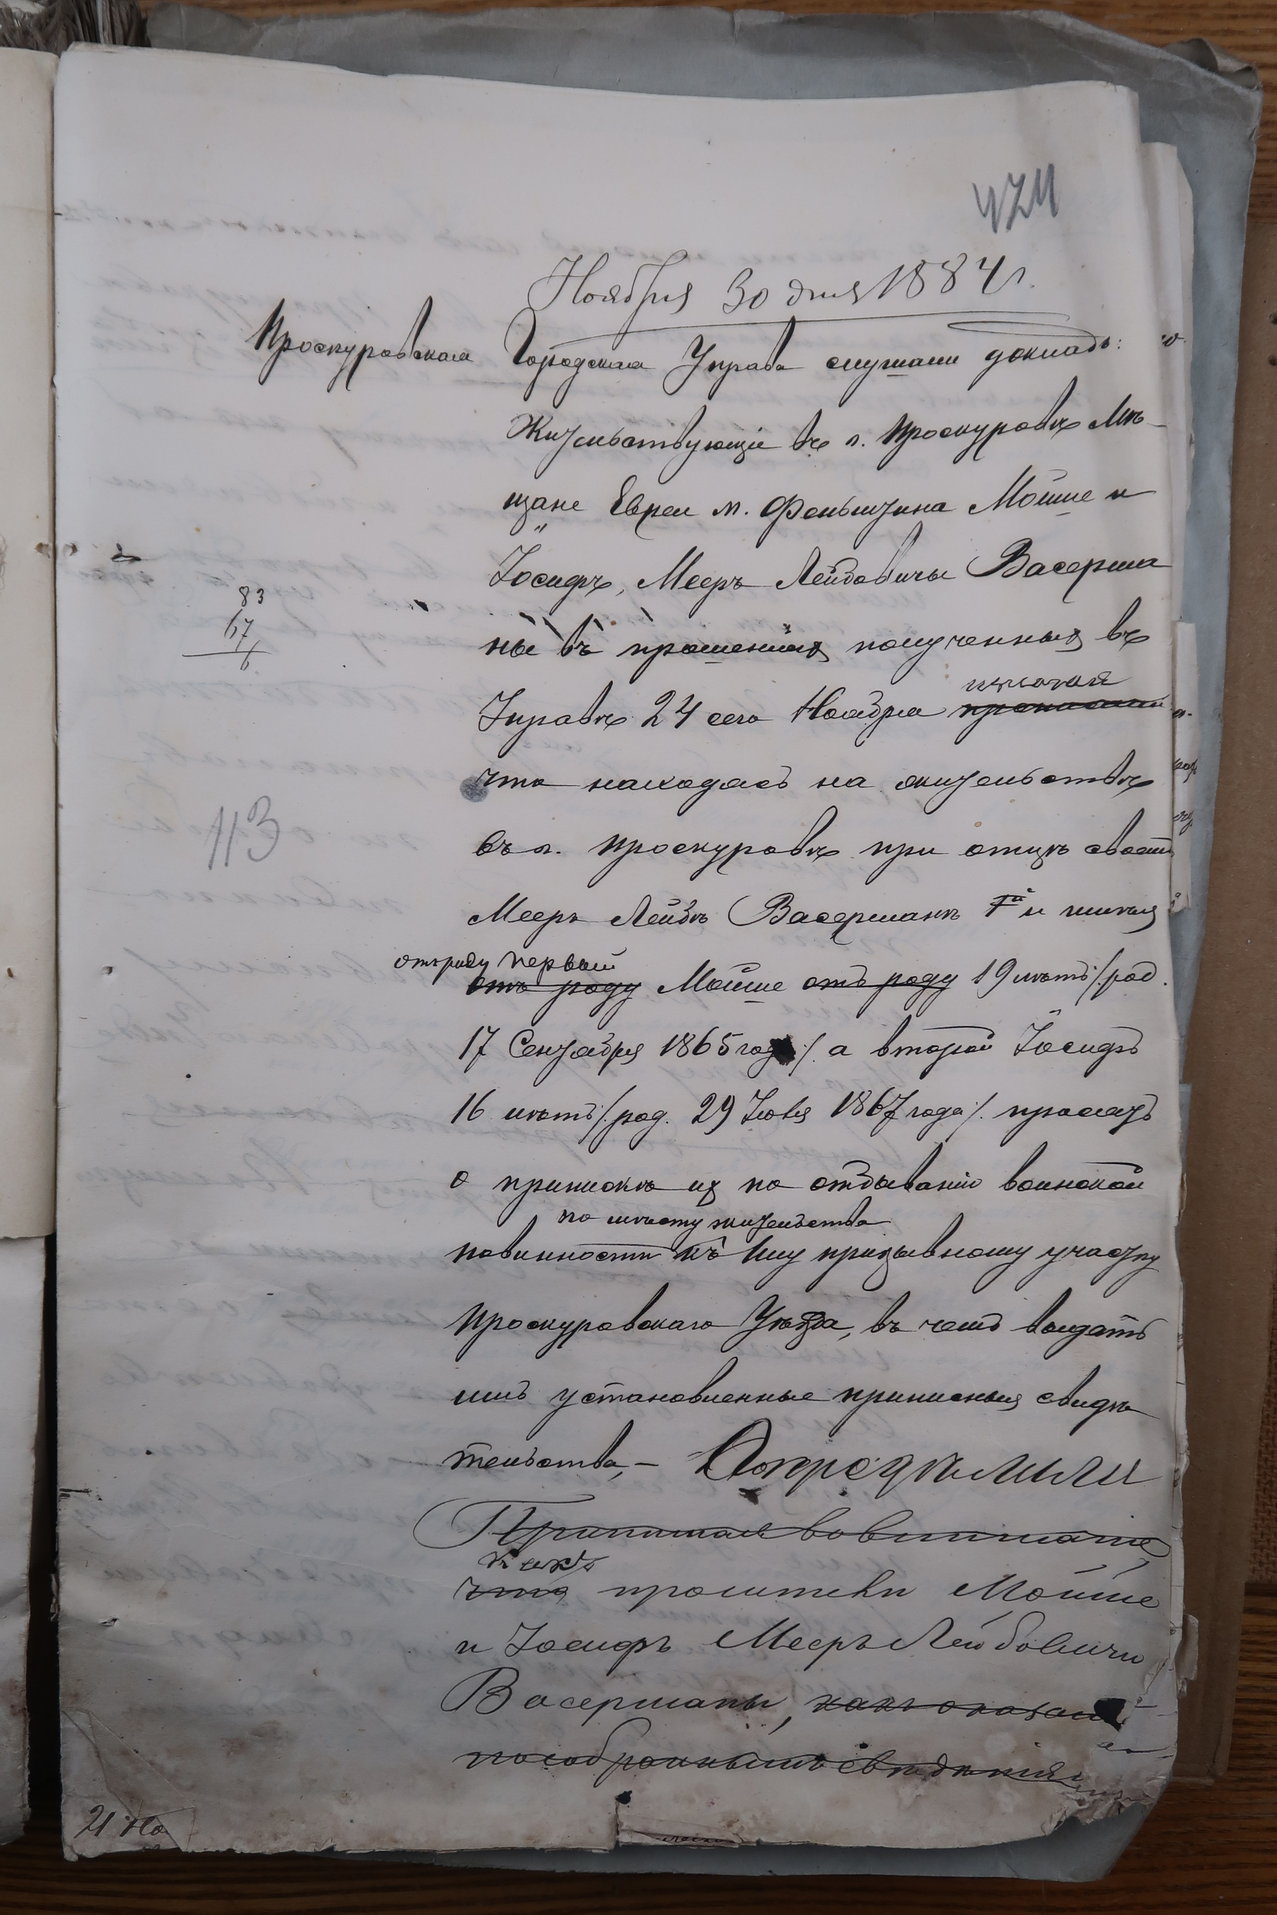 424
Ноября 30 дня 1884 г.
Проскуровская Городская Управа слушали докладъ:
Жительствующіе въ г. Проскуровѣ Мѣ-
щане Евреи м. Фельштина Мойше и
Іосифъ, Мееръ Лейбовичы Васерма
ны въ прошеніях полученных въ
83
67
6
Управѣ 24 сего Ноября
что находясь на жительствѣ
въ г. Проскуровѣ при отцѣ своемъ
113
Меерѣ Лейбѣ Васерманѣ и имѣя
отъ роду первый
отъ роду Мойше отъ роду 19 лѣтъ /: род.
17 Сентября 1865 года :/ а второй Іосифъ
16 лѣтъ /: род. 29 Іюля 1867 года :/. просятъ
о припискѣ их по отбыванію воинской
по мѣсту жительства
повинности къ му призывному участку
Проскуровскаго Уѣзда, въ чемъ выдать
имъ установленные приписныя свидѣ
тельства, — Опредѣлили
Принимая во вниманіе,
какъ
что просители Мойше
и Іосифъ Мееръ Лейбовичи
Васерманы, какъ оказал
по собраннымъ свѣдѣніям
21 Но